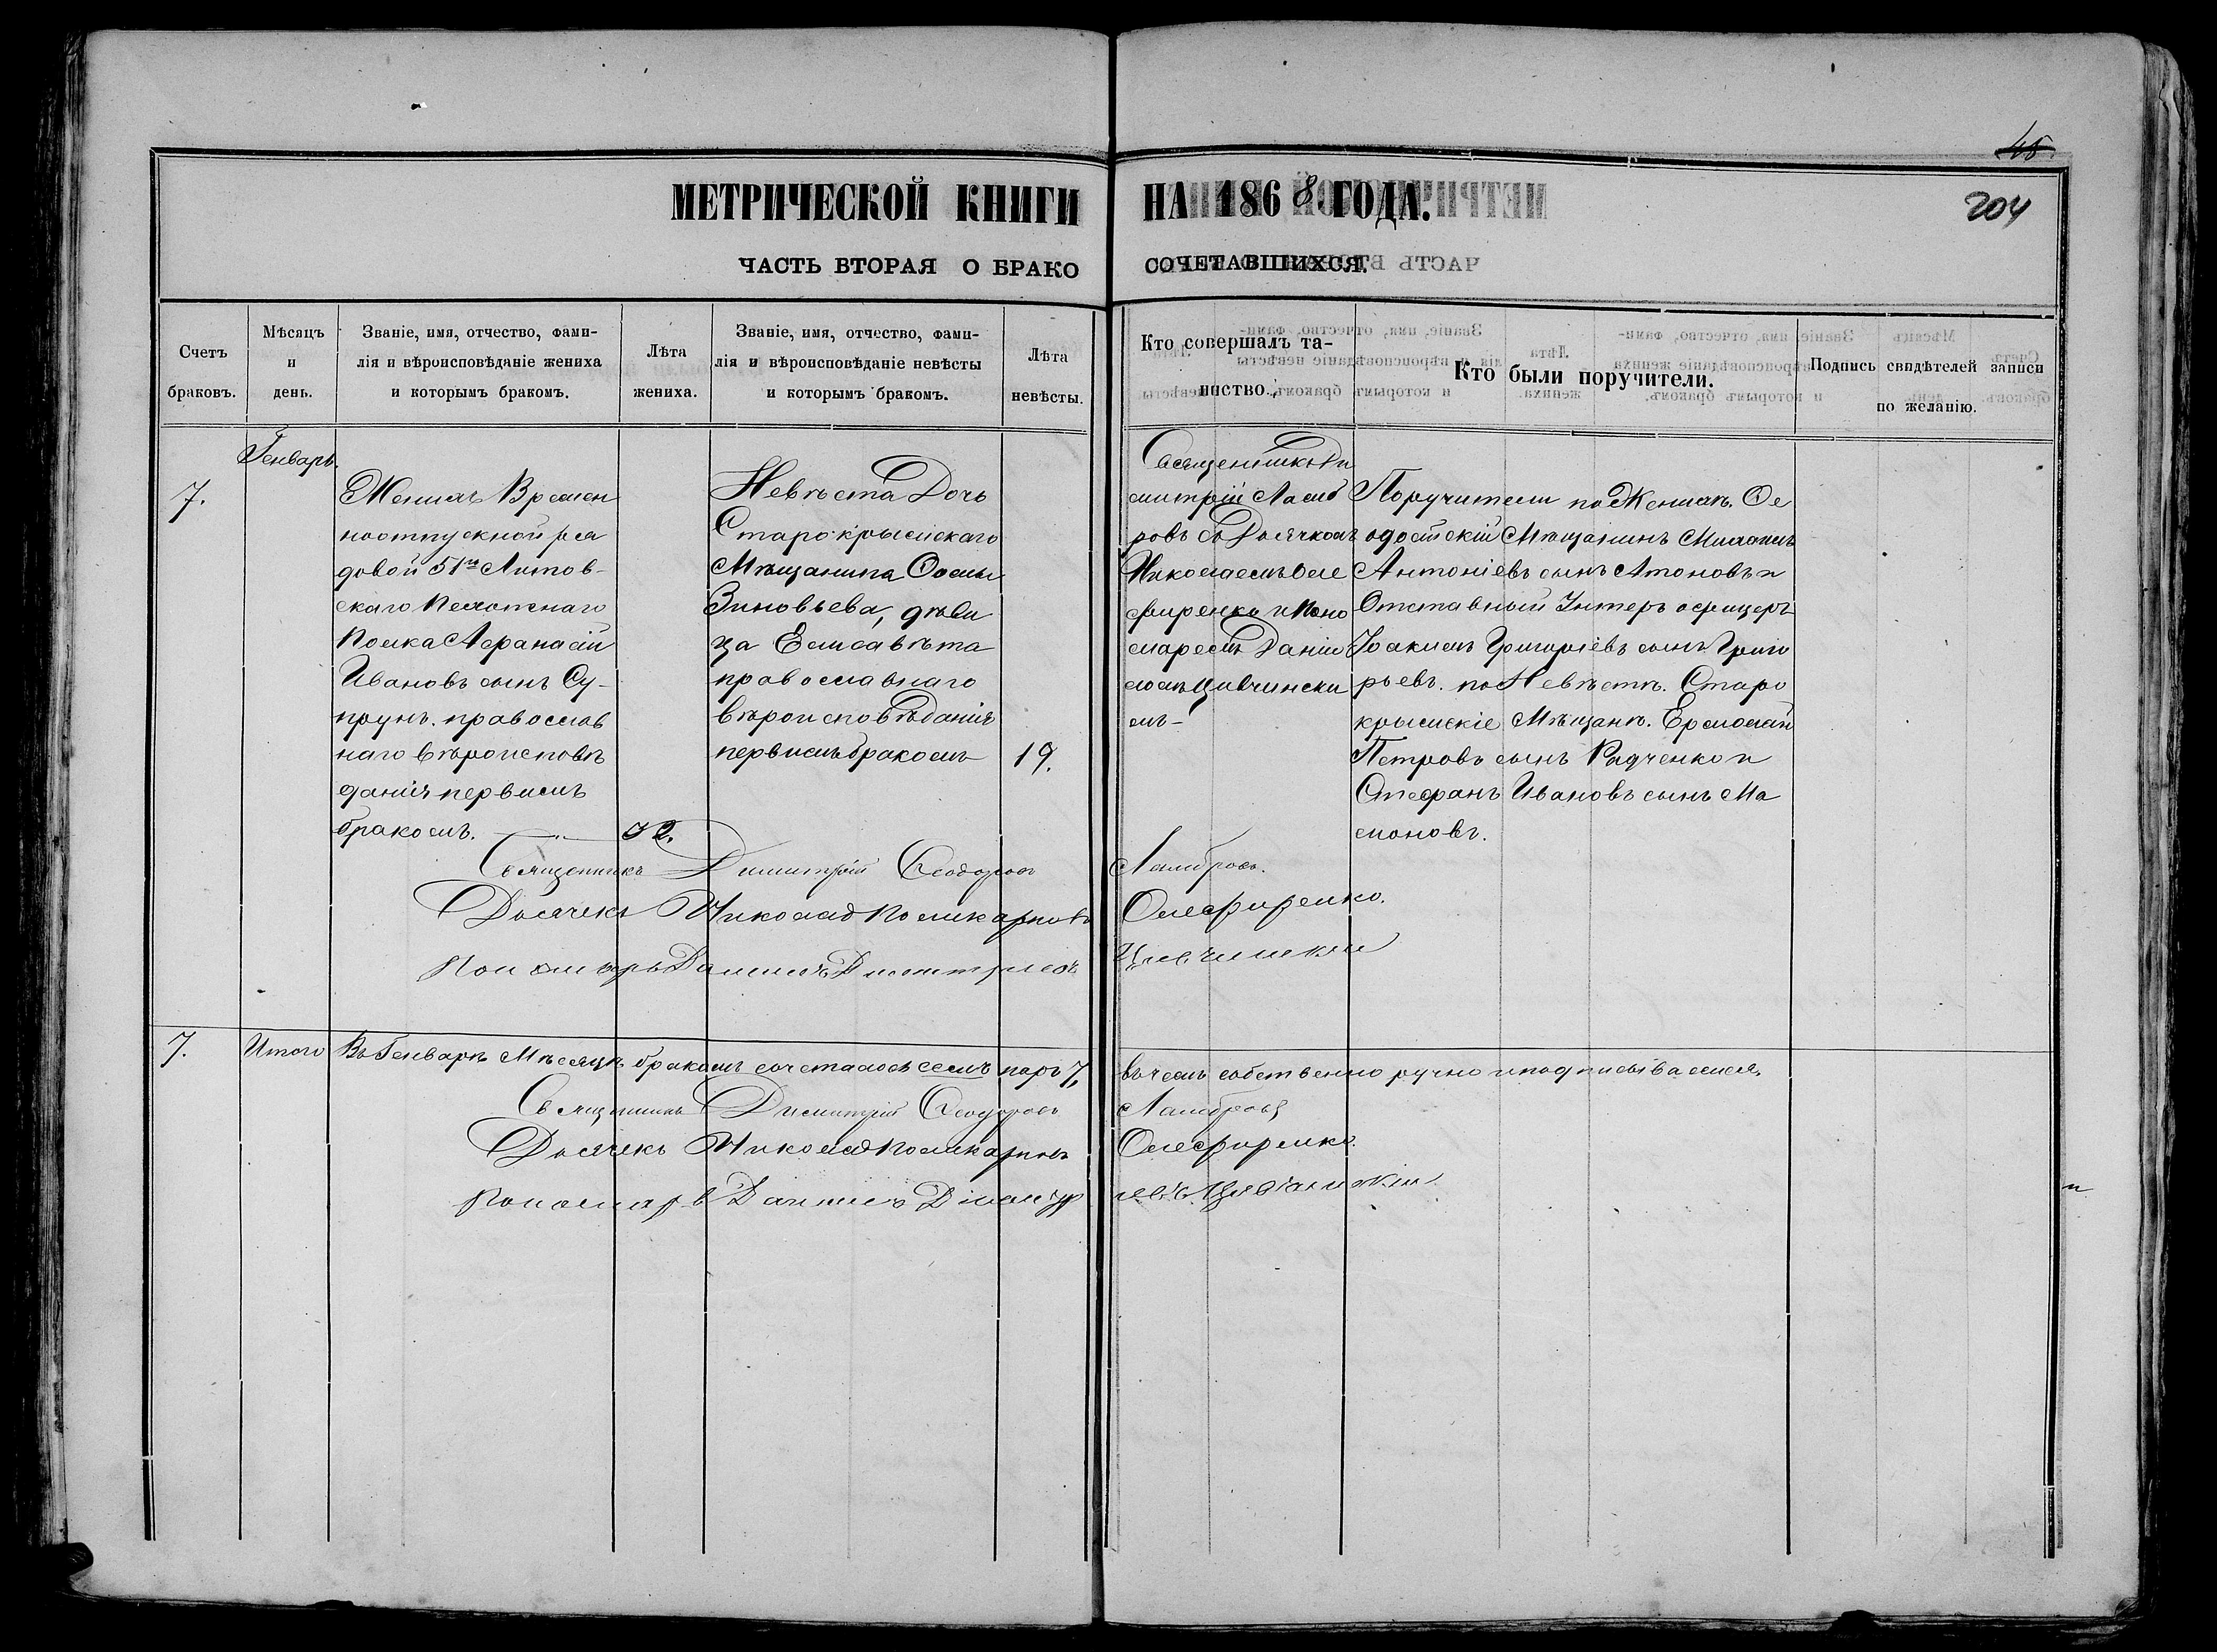 45
МЕТРИЧЕСКОЙ КНИГИ НА 1868 ГОДА.
204
ЧАСТЬ ВТОРАЯ О БРАКОСОЧЕТАВШИХСЯ.
Счетъ
браковъ.
Мѣсяцъ
и
день.
Званіе, имя, отчество, фами-
лія и вѣроисповѣданіе жениха
и которымъ бракомъ.
Лѣта
жениха.
Званіе, имя, отчество, фами-
лія и вѣроисповѣданіе невѣсты
и которымъ бракомъ.
Лѣта
невѣсты.
Кто совершалъ та-
инство.
Кто были поручители.
Подпись свидѣтелей записи
по желанію.
7.
Генварь.
Женихъ Времен
ноотпускной ря
довой 51го Литов-
скаго Пехотнаго
Полка Афанасій
Ивановъ сынъ Су-
прунъ. православ
наго вѣроисповѣ
данія первымъ
бракомъ.
32.
Невѣста Дочь
Старо крымскаго
Мѣщанина Фомы
Зиновьева, дѣви
ца Елисавѣта
православнаго
вѣроисповѣданія
первымъ бракомъ
19.
Священникъ Ди
митрій Ламб
ровъ съ Дьячкомъ
Николаемъ Оле
фиренко и Поно
маремъ Даніи
ломъ Цивчински
мъ-
Поручители по Женихѣ. Ѳе
одосійскій Мѣщанинъ Михаилъ
Антоніевъ сынъ Атоновъ и
Отставный Унтеръ офицеръ
Іоакимъ Григоріевъ сынъ Григо
рьевъ. по Невѣстѣ. Старо
крымскіе Мѣщанѣ. Ермолай
Петровъ сынъ Радченко и
Стефанъ Ивановъ сынъ Ма
моновъ.
Священникъ Димитрій Ѳеодоровъ Ламбровъ.
Дьячекъ Николай Поликарповъ Олефиренко.
Пономарь Даниилъ Дмитриевъ Цивчинский
7. Итого Въ Генварѣ Мѣсяцѣ бракомъ сочеталось семь паръ 7, въ чемъ собственно ручно и подписываемся,
Священникъ Димитрій Ѳеодоровъ Ламбровъ
Дьячекъ Николай Поликарповъ Олефиренко.
Пономарь Даниилъ Димитріевъ Цивчинскій